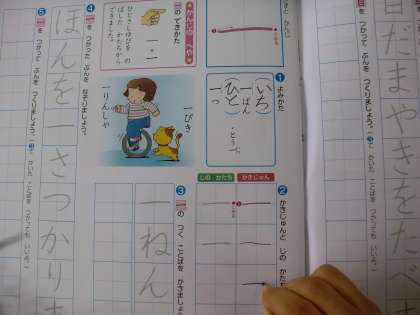 日だまやきをたべ
かんじの へや
一の できかた
ひとさしゆびを の
ばした かたちから
できました。
① よみかた
いち
一ばん
ひと
一つ
一とう
一ぴき
一りんしゃ
② かきじゅんと じの かたち
かきじゅん
じの かたち
③ 一の つく ことばを かきましょう。
一ねん
④ 一を つかった ぶんを なぞりましょう。
ほんを一さつかりま
⑤ 一を つかって ぶんを つくりましょう。